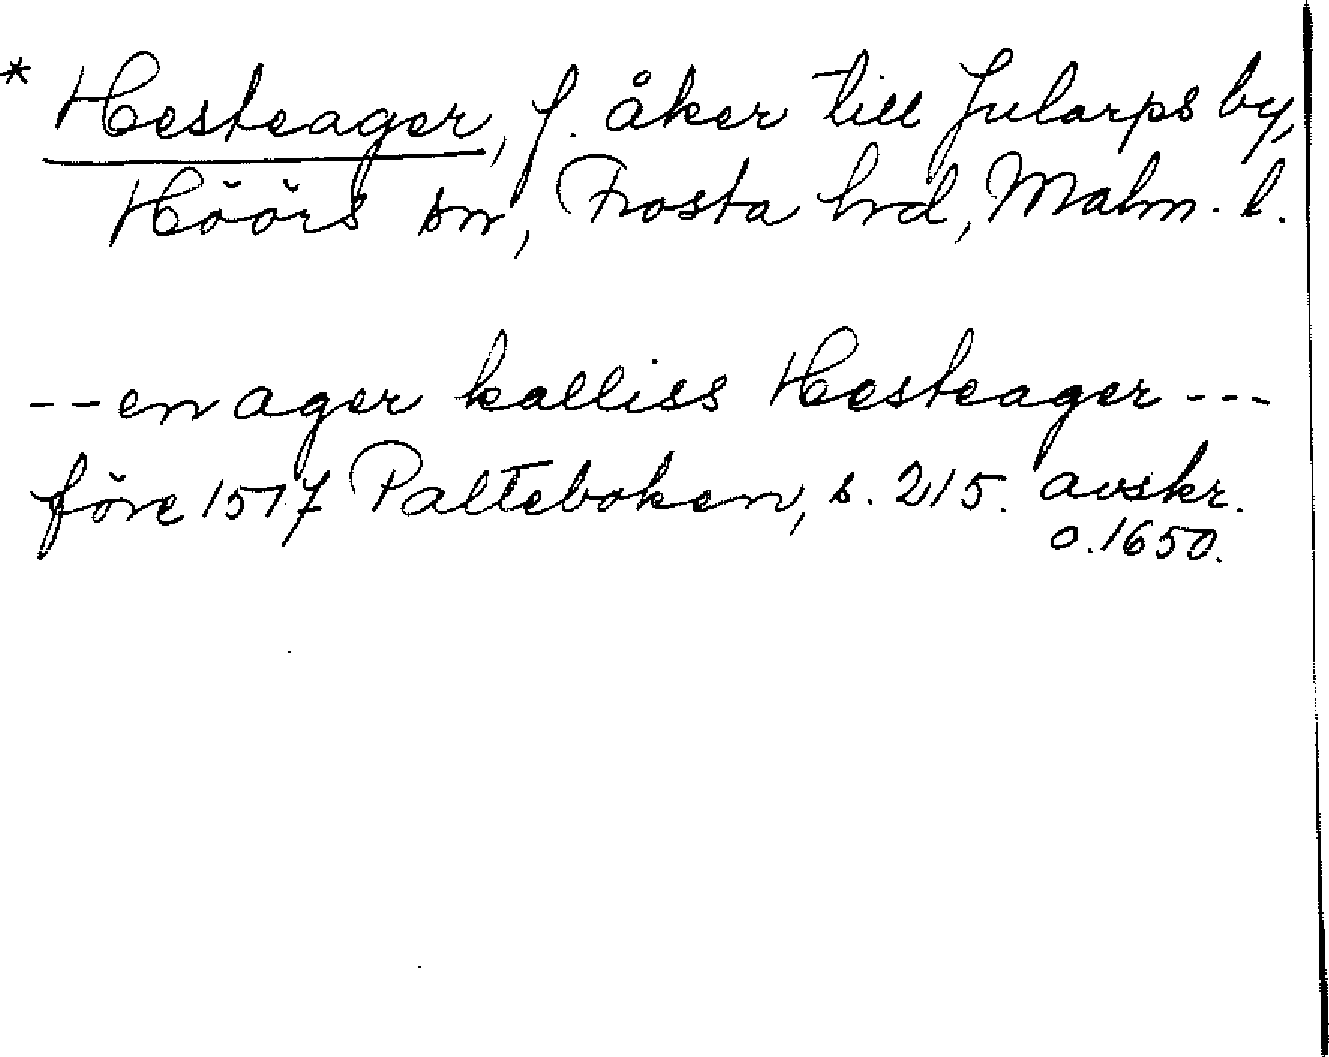 * Hesteager, f. åker till Jularps by,
Höörs sn, Frosta hrd, Malm. l.
-- en ager kalliss Hesteager ---
före 1517 Palteboken, s. 215. avskr.
o. 1650.